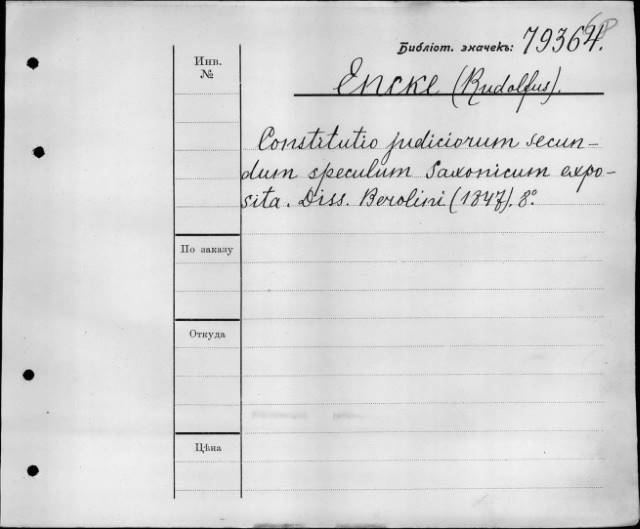 Библіот. значекъ: 79364.
Инв.
№
Encke (Rudolfus).
Constitutio judiciorum secun-
dum speculum Saxonicum expo-
sita. Diss. Berolini (1847). 8°.
По заказу
Откуда
Цѣна